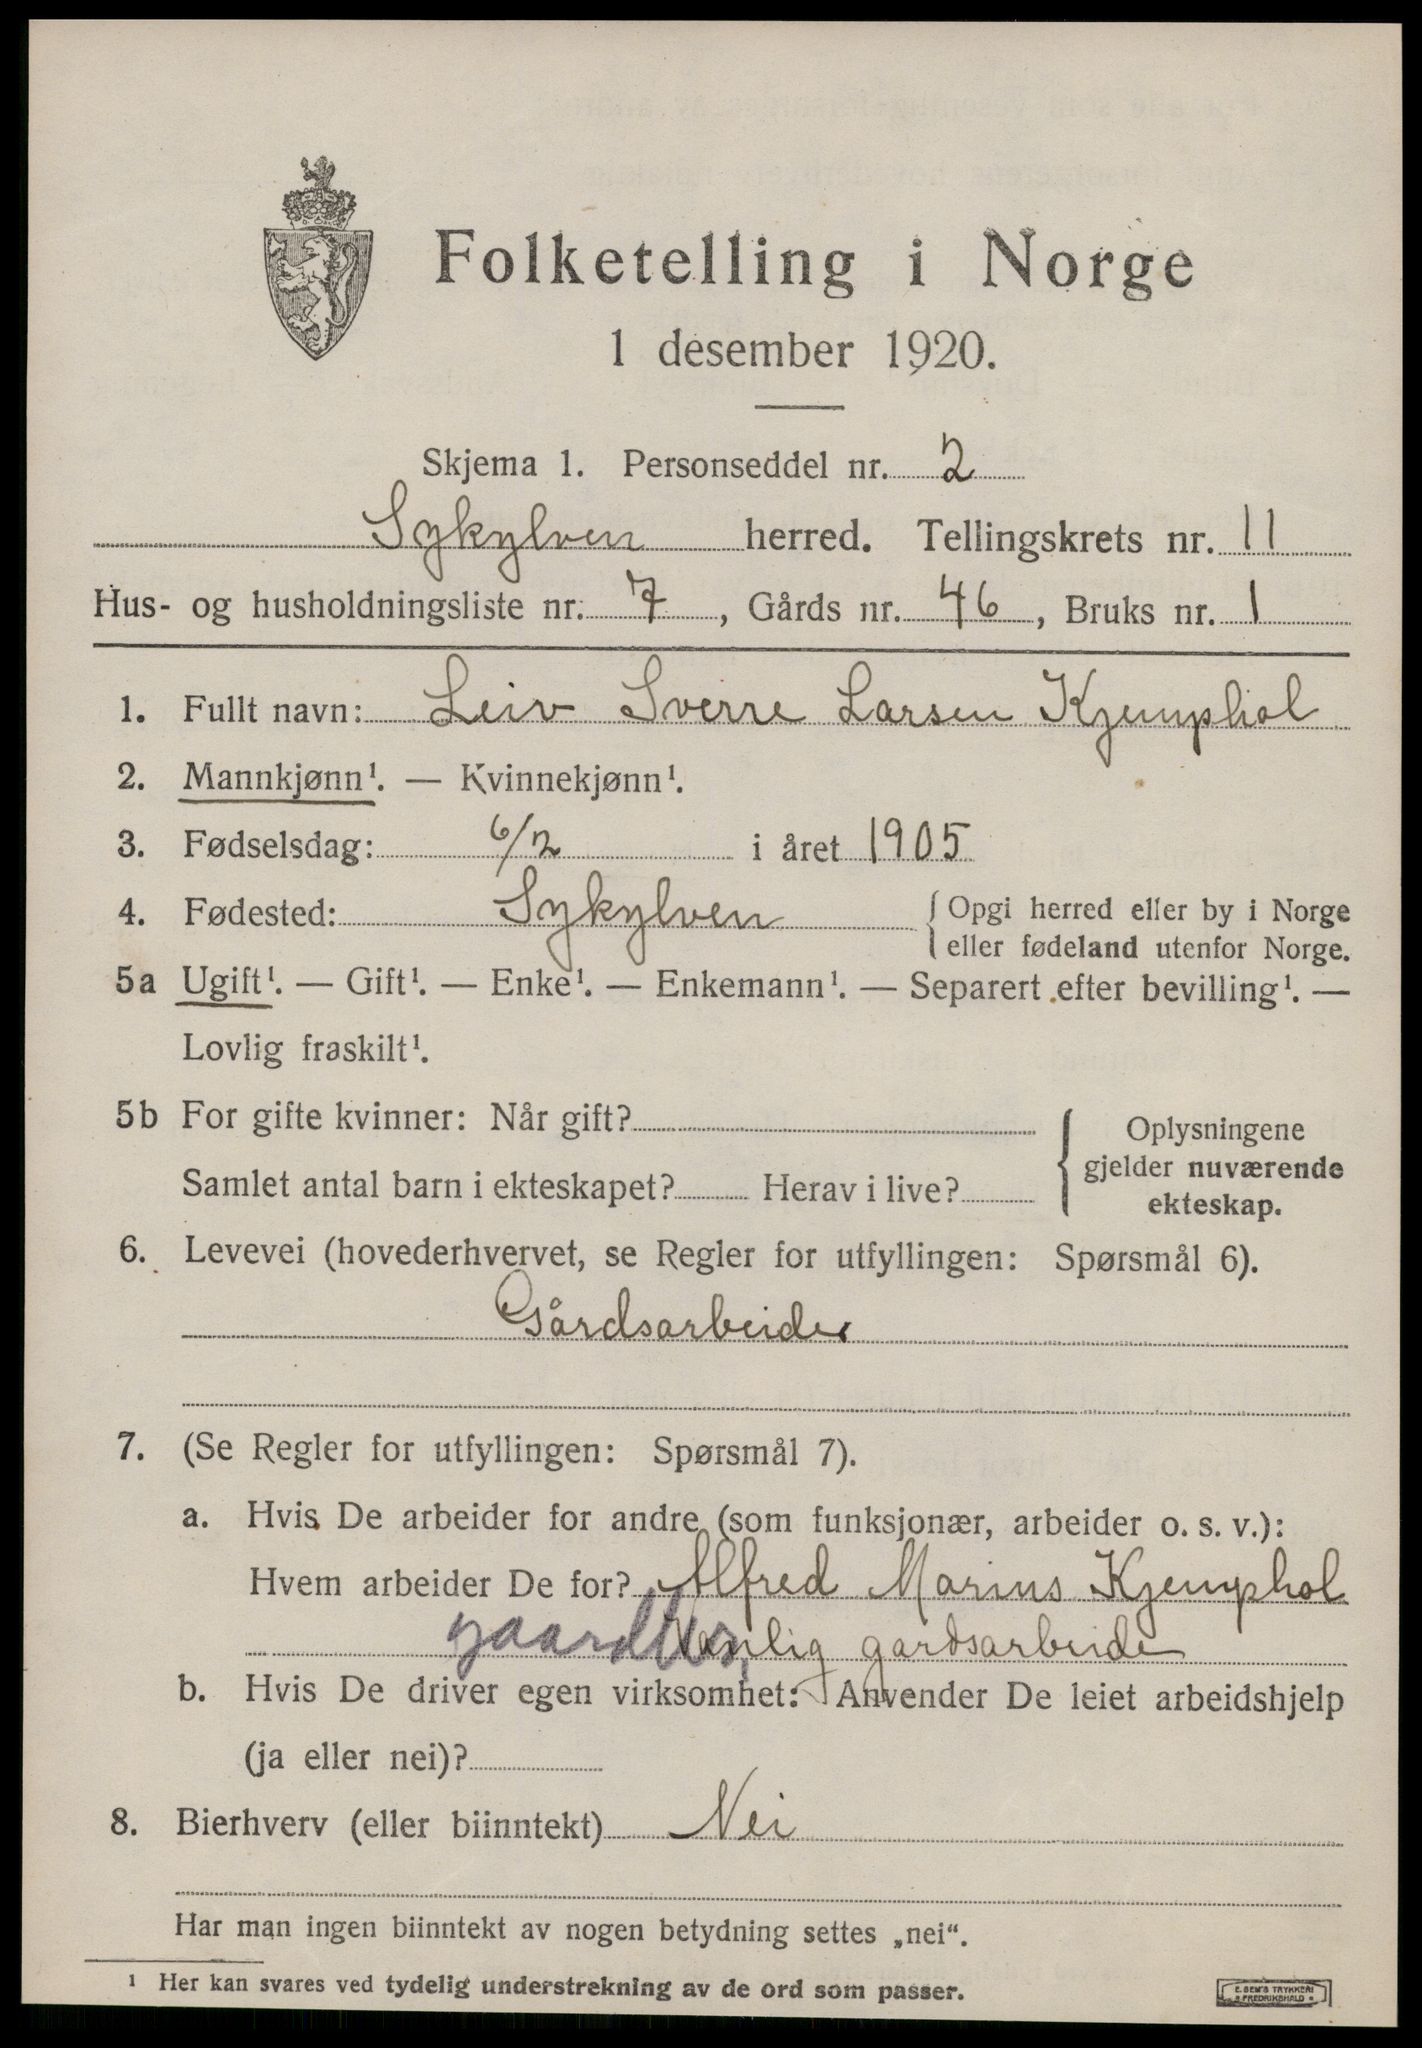 Folketelling i Norge
1 desember 1920.
Skjema 1. Personseddel nr. 2
Sykylven herred. Tellingskrets nr. 11
Hus- og husholdningsliste nr. 7, Gårds nr. 46, Bruks nr. 1
1. Fullt navn: Leiv Sverre Larsen Kjemphol
2. Mannkjønn¹. — Kvinnekjønn¹.
3. Fødselsdag: 6/2 i året 1905
4. Fødested: Sykylven { Opgi herred eller by i Norge
eller fødeland utenfor Norge.
5a Ugift¹. — Gift¹. — Enke¹. — Enkemann¹. — Separert efter bevilling¹. —
Lovlig fraskilt¹.
5b For gifte kvinner: Når gift?
Samlet antal barn i ekteskapet? Herav i live?
{ Oplysningene
gjelder nuværende
ekteskap.
6. Levevei (hovederhvervet, se Regler for utfyllingen: Spørsmål 6).
Gårdsarbeider
7. (Se Regler for utfyllingen: Spørsmål 7).
a. Hvis De arbeider for andre (som funksjonær, arbeider o. s. v.):
Hvem arbeider De for? Alfred Marius Kjemphol
Vanlig gardsarbeide
b. Hvis De driver egen virksomhet: Anvender De leiet arbeidshjelp
(ja eller nei)?
8. Bierhverv (eller biinntekt) Nei
Har man ingen biinntekt av nogen betydning settes „nei“.
¹ Her kan svares ved tydelig understrekning av de ord som passer.
E. SEM'S TRYKKERI
FREDRIKSHALD